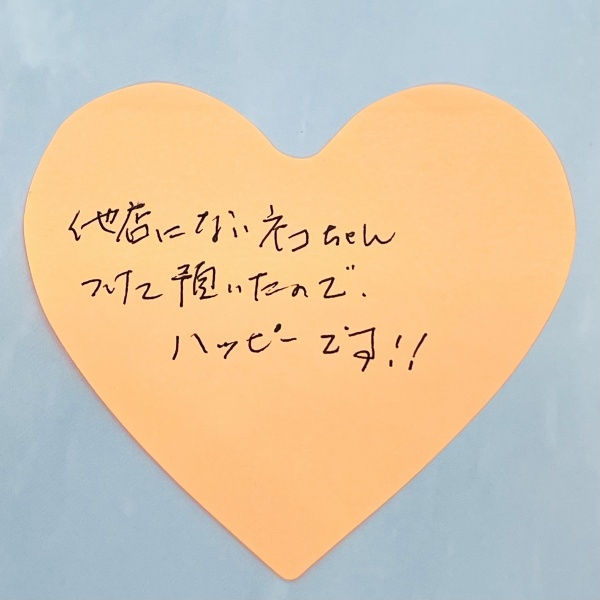 他店にないネコちゃん
つけて頂いたので、
ハッピーです!!